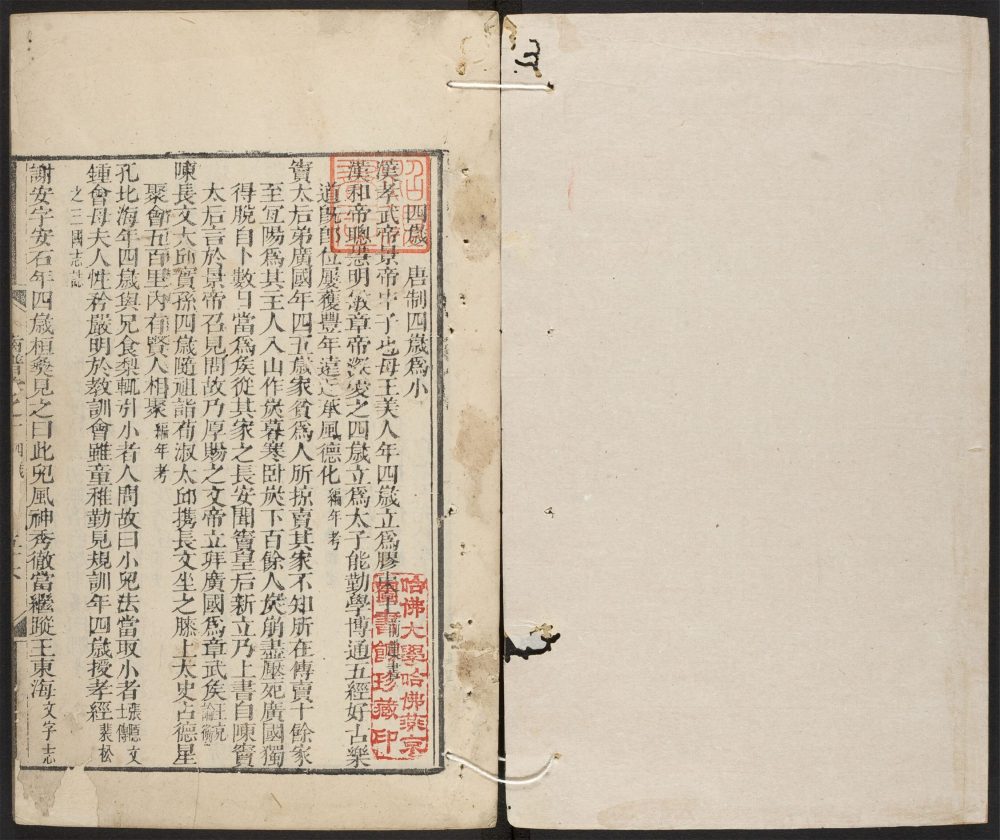 四歲 唐制四歲為小
漢孝武帝景帝中子也母王美人年四歲立為膠東王前漢書
漢和帝聰慧明敏章帝深愛之四歲立為太子能勤學博通五經好古樂
道既即位屢獲豐年遠近承風德化編年考
竇太后弟廣國年四五歲家貧為人所掠賣其家不知所在傳賣十餘家
至宜陽為其主人入山作炭暮寒臥炭下百餘人炭崩盡壓死廣國獨
得脫自卜數日當為侯從其家之長安聞竇皇后新立乃上書自陳竇
太后言於景帝召見問故乃厚賜之文帝立拜廣國為章武侯論衡
陳長文大邱寔孫四歲隨祖詣荀淑太邱携長文坐之膝上太史占德星
聚會五百里內有賢人相聚編年考
孔北海年四歲與兄食梨輒引小者人問故曰小兒法當取小者張隱文士傳
鍾會母夫人性矜嚴明於教訓會雖童稚勤見規訓年四歲授孝經裴松
之三國志註
謝安字安石年四歲桓彝見之曰此兒風神秀徹當繼蹤王東海文字志
四歲
哈佛大學哈佛燕京
圖書館珍藏印